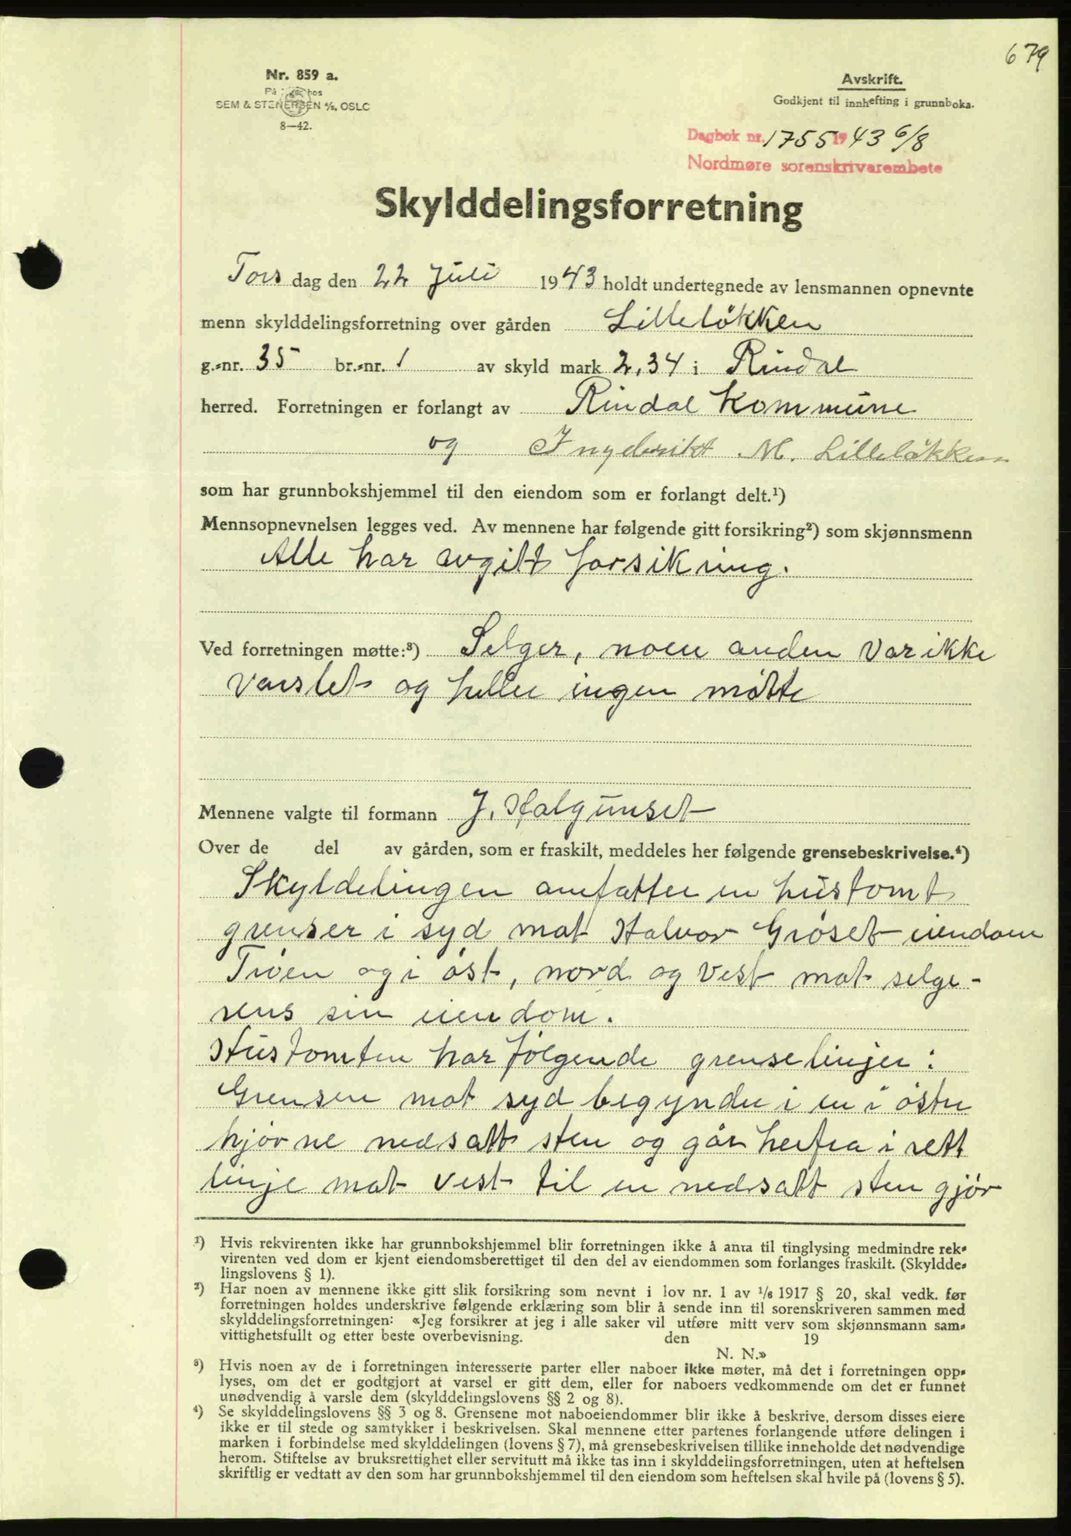 679
Nr. 859 a.
SEM & STENERSEN A/S, OSLO
8—42.
Avskrift.
Godkjent til innhefting i grunnboka.
Dagbok nr. 1755 1943 6/8
Nordmøre sorenskrivarembete
Skylddelingsforretning
Tors dag den 22 Juli 1943 holdt undertegnede av lensmannen opnevnte
menn skylddelingsforretning over gården Lilleløkken
g.-nr. 35 br.-nr. 1 av skyld mark 2,34 i Rindal
herred. Forretningen er forlangt av Rindal Kommune
og Ingebrikt M. Lilleløkken
som har grunnbokshjemmel til den eiendom som er forlangt delt.¹)
Mennsopnevnelsen legges ved. Av mennene har følgende gitt forsikring²) som skjønnsmenn
Alle har avgitt forsikring.
Ved forretningen møtte:³) Selger, noen anden var ikke
varslet og heller ingen møtte
Mennene valgte til formann J. Halgunset
Over de del av gården, som er fraskilt, meddeles her følgende grensebeskrivelse.⁴)
Skyldelingen omfatter en hustomt
grenser i syd mot Halvor Grøset eiendom
Trøen og i øst, nord og vest mot selge-
rens sin eiendom.
Hustomten har følgende grenselinjer:
Grensen mot syd begynder i en i østre
hjørne nedsatt sten og går herfra i rett
linje mot vest til en nedsatt sten gjør
¹) Hvis rekvirenten ikke har grunnbokshjemmel blir forretningen ikke å anta til tinglysing medmindre rek-
virenten ved dom er kjent eiendomsberettiget til den del av eiendommen som forlanges fraskilt. (Skyldde-
lingslovens § 1).
²) Har noen av mennene ikke gitt slik forsikring som nevnt i lov nr. 1 av 1/6 1917 § 20, skal vedk. før
forretningen holdes underskrive følgende erklæring som blir å sende inn til sorenskriveren sammen med
skylddelingsforretningen: «Jeg forsikrer at jeg i alle saker vil utføre mitt verv som skjønnsmann sam-
vittighetsfullt og etter beste overbevisning. den 19
N. N.»
³) Hvis noen av de i forretningen interesserte parter eller naboer ikke møter, må det i forretningen opp-
lyses, om det er godtgjort at varsel er gitt dem, eller for naboers vedkommende om det er funnet
unødvendig å varsle dem (skylddelingslovens §§ 2 og 8).
⁴) Se skylddelingslovens §§ 3 og 8. Grensene mot naboeiendommer blir ikke å beskrive, dersom disses eiere
ikke er til stede og samtykker i beskrivelsen. Skal mennene etter partenes forlangende utføre delingen i
marken i forbindelse med skylddelingen (lovens § 7), må grensebeskrivelsen tillike inneholde det nødvendige
herom. Stiftelse av bruksrettighet eller servitutt må ikke tas inn i skylddelingsforretningen, uten at heftelsen
skriftlig er vedtatt av den som har grunnbokshjemmel til den eiendom som heftelsen skal hvile på (lovens § 5).